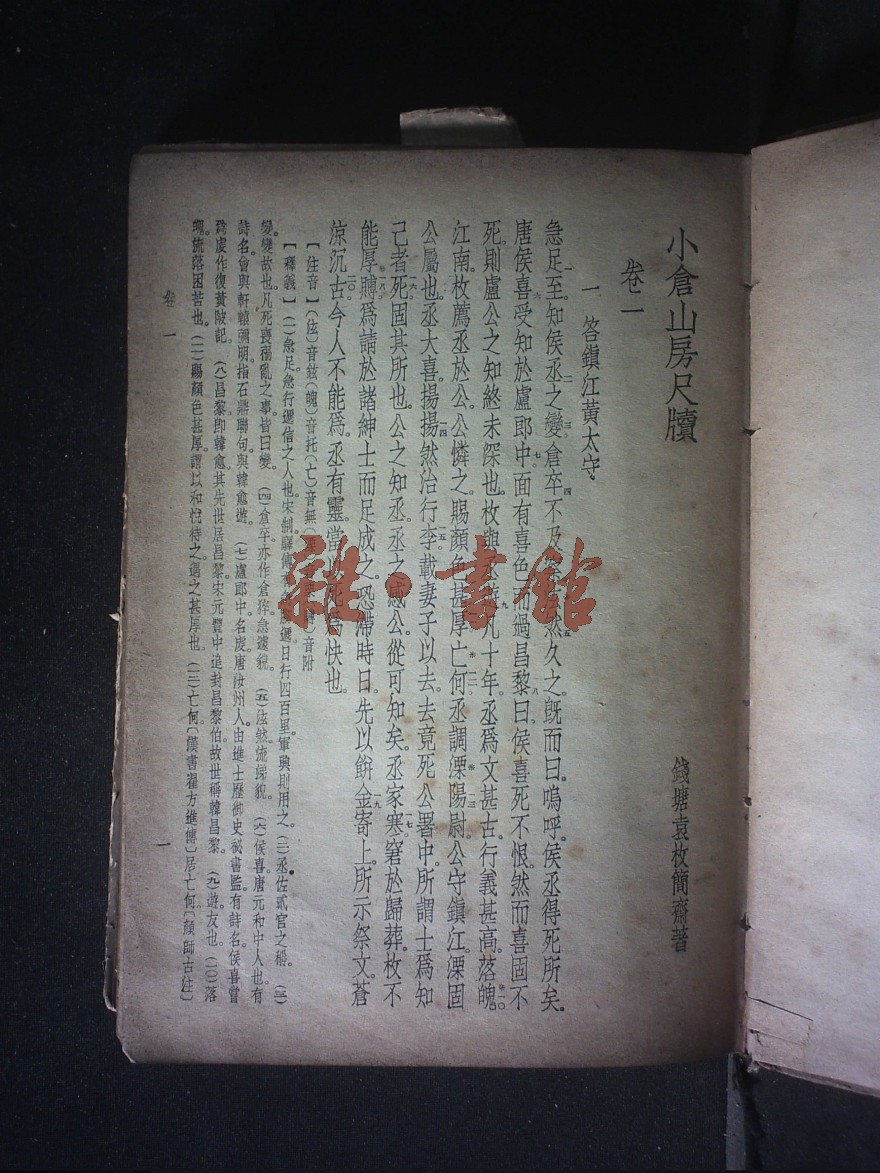 小倉山房尺牘
錢塘袁枚簡齋著
卷一
一 答鎮江黃太守
急足至。知侯丞之變。倉卒不及 然久之。既而曰。嗚呼。侯丞得死所矣。
唐侯喜受知於盧郎中。面有喜色。而過昌黎曰。侯喜死不恨。然而喜固不
死。則盧公之知終未深也。枚與 遊九十年。丞爲文甚古。行義甚高。落魄
江南。枚薦丞於公。公憐之。賜顏色甚厚。亡何。丞調溧陽尉。公守鎮江。溧固
公屬也。丞大喜。揚揚然治行李。載妻子以去。去竟死公署中。所謂士爲知
己者死。固其所也。公之知丞。丞之感公。從可知矣。丞家寒窘於歸葬。枚不
能厚賻。爲請於諸紳士而足成之。恐滯時日。先以餅金寄上。所示祭文。蒼
涼沉古。今人不能爲。丞有靈。當以 爲快也。
【注音】(泫)音鉉(魄)音托(亡)音無 音附
【釋義】(一)急足。急行遞信之人也。宋制驛傳 遞日行四百里。軍興則用之。(二)丞佐貳官之稱。(三)
變。變故也。凡死喪禍亂之事皆曰變。(四)倉卒。亦作倉猝。急遽貌。(五)泫然。流涕貌。(六)侯喜。唐元和中人也。有
詩名。曾與軒轅彌明指石鼎聯句。與韓愈遊。(七)盧郎中。名虔。唐汝州人。由進士歷御史祕書監。有詩名。侯喜嘗
爲虔作復黃陂記。(八)昌黎。卽韓愈。其先世居昌黎。宋元豐中追封昌黎伯。故世稱韓昌黎。(九)遊。友也。(一〇)落
魄。流落困苦也。(一一)賜顏色甚厚。謂以和悅待之。遇之甚厚也。(一二)亡何。〔漢書翟方進傳〕居亡何。〔顏師古注〕
卷一
一
雜·書館